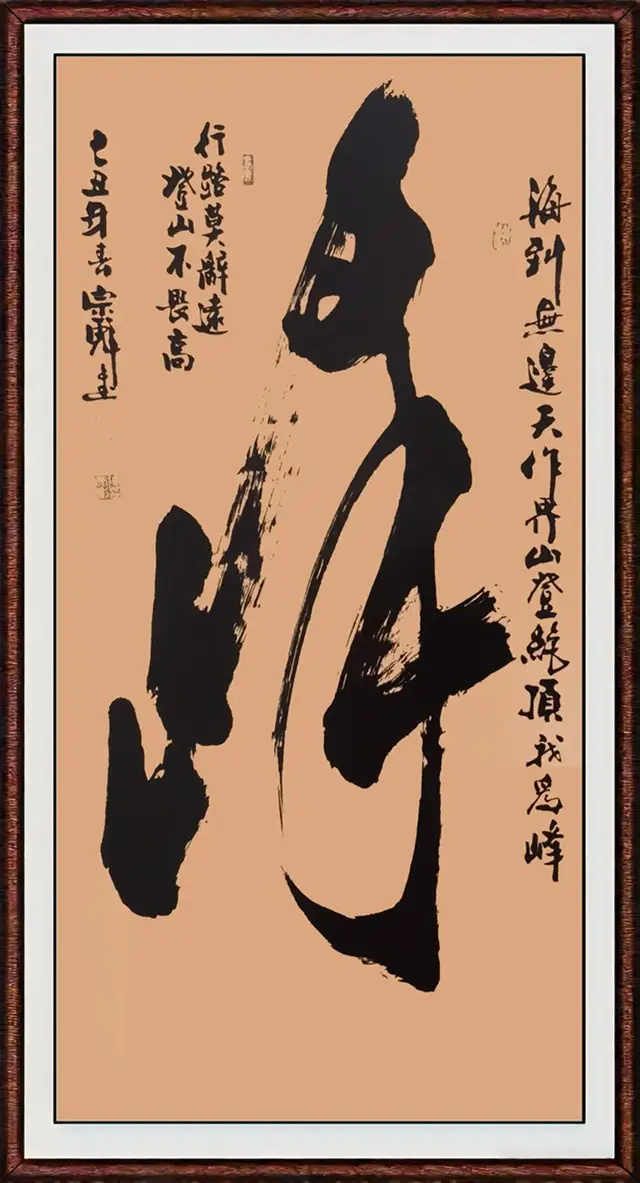 海到無邊天作界山登絕頂我為峰
行路莫辭遠
登山不畏高
己丑年春宗書